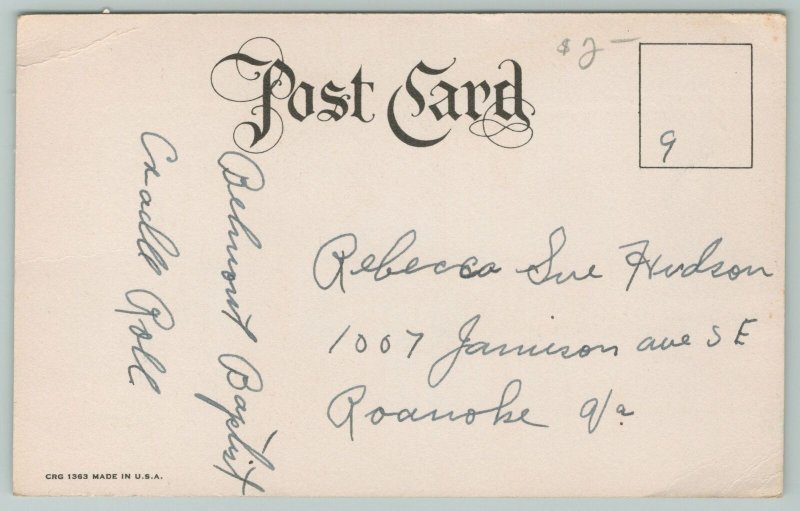 Post Card
$2—
9
Belmont Baptist
Cradle Roll
Rebecca Sue Hudson
1007 Jamison ave SE
Roanoke Va
CRG 1363 MADE IN U.S.A.